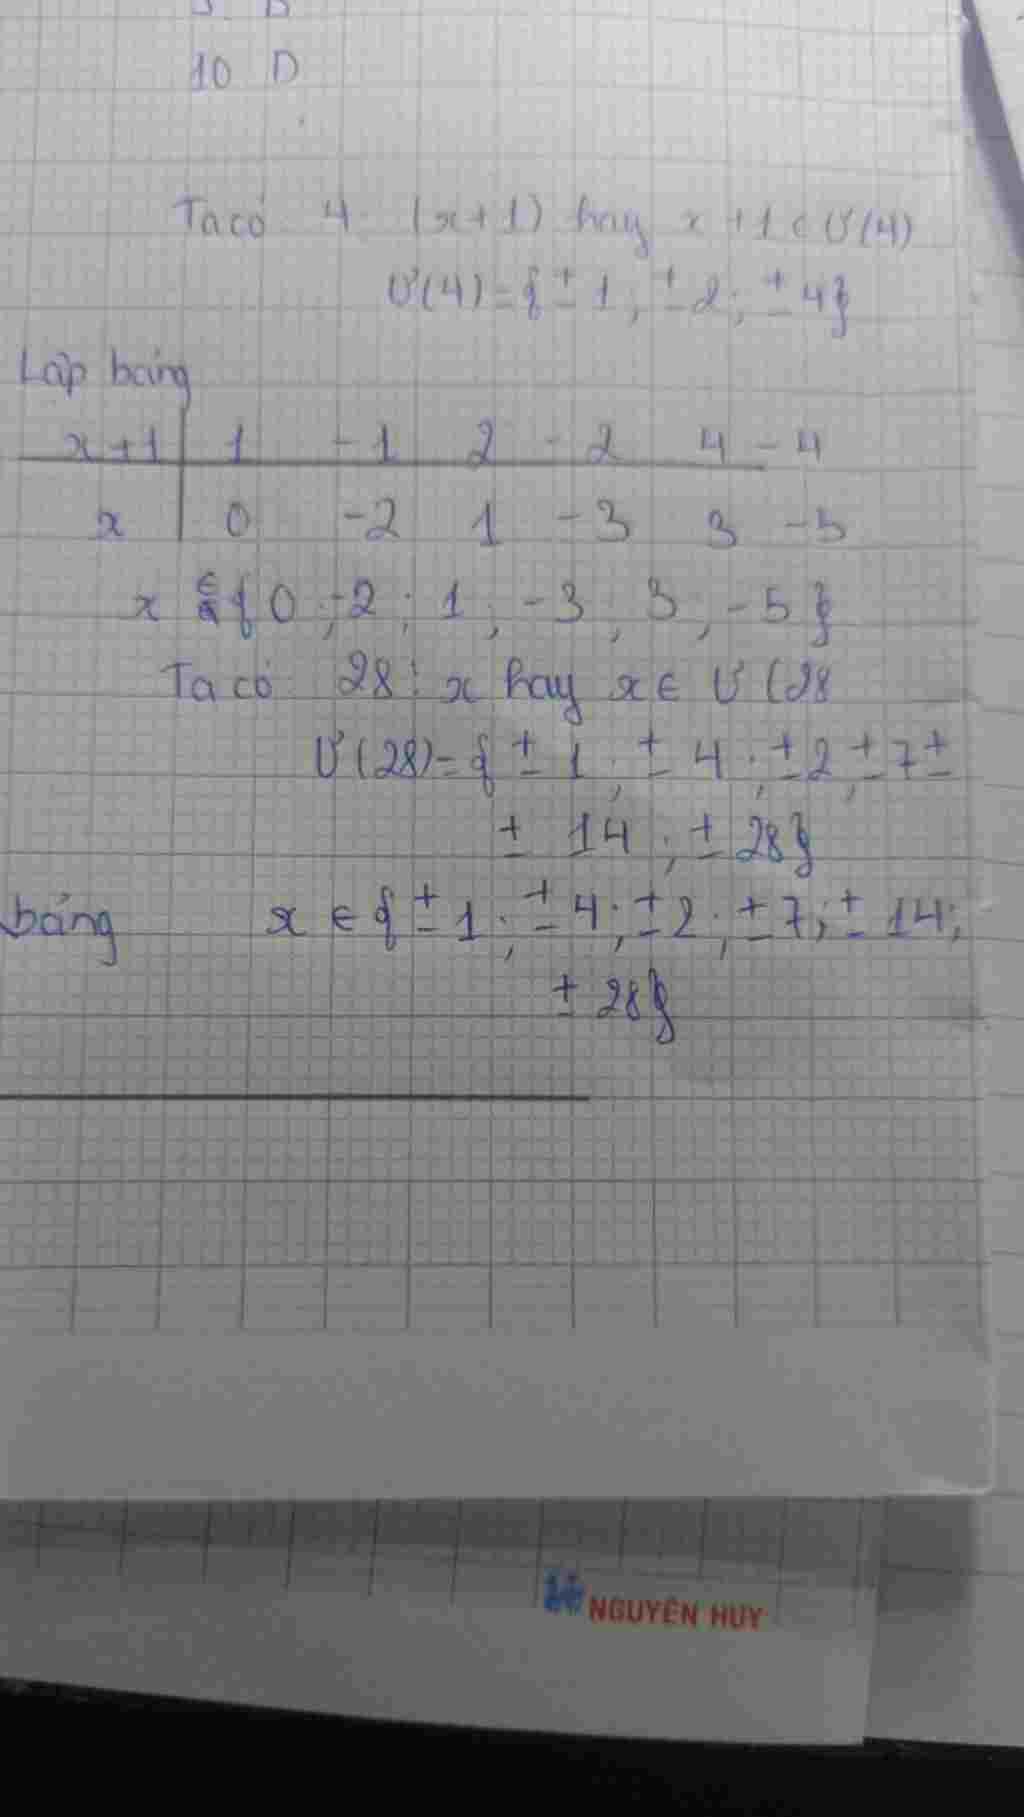 10 D
Ta có 4 (x+1) hay x+1 ∈ Ư(4)
Ư(4)={±1; ±2; ±4}
Lập bảng
x+1 | 1 -1 2 -2 4 -4
x | 0 -2 1 -3 3 -5
x ∈ {0; -2; 1; -3; 3; -5}
Ta có 28 ⋮ x hay x ∈ Ư (28
Ư(28)={±1; ±4; ±2; ±7 ±
± 14; ± 28}
bảng x ∈ {±1; ±4; ±2; ±7; ±14;
± 28}
NGUYÊN HUY